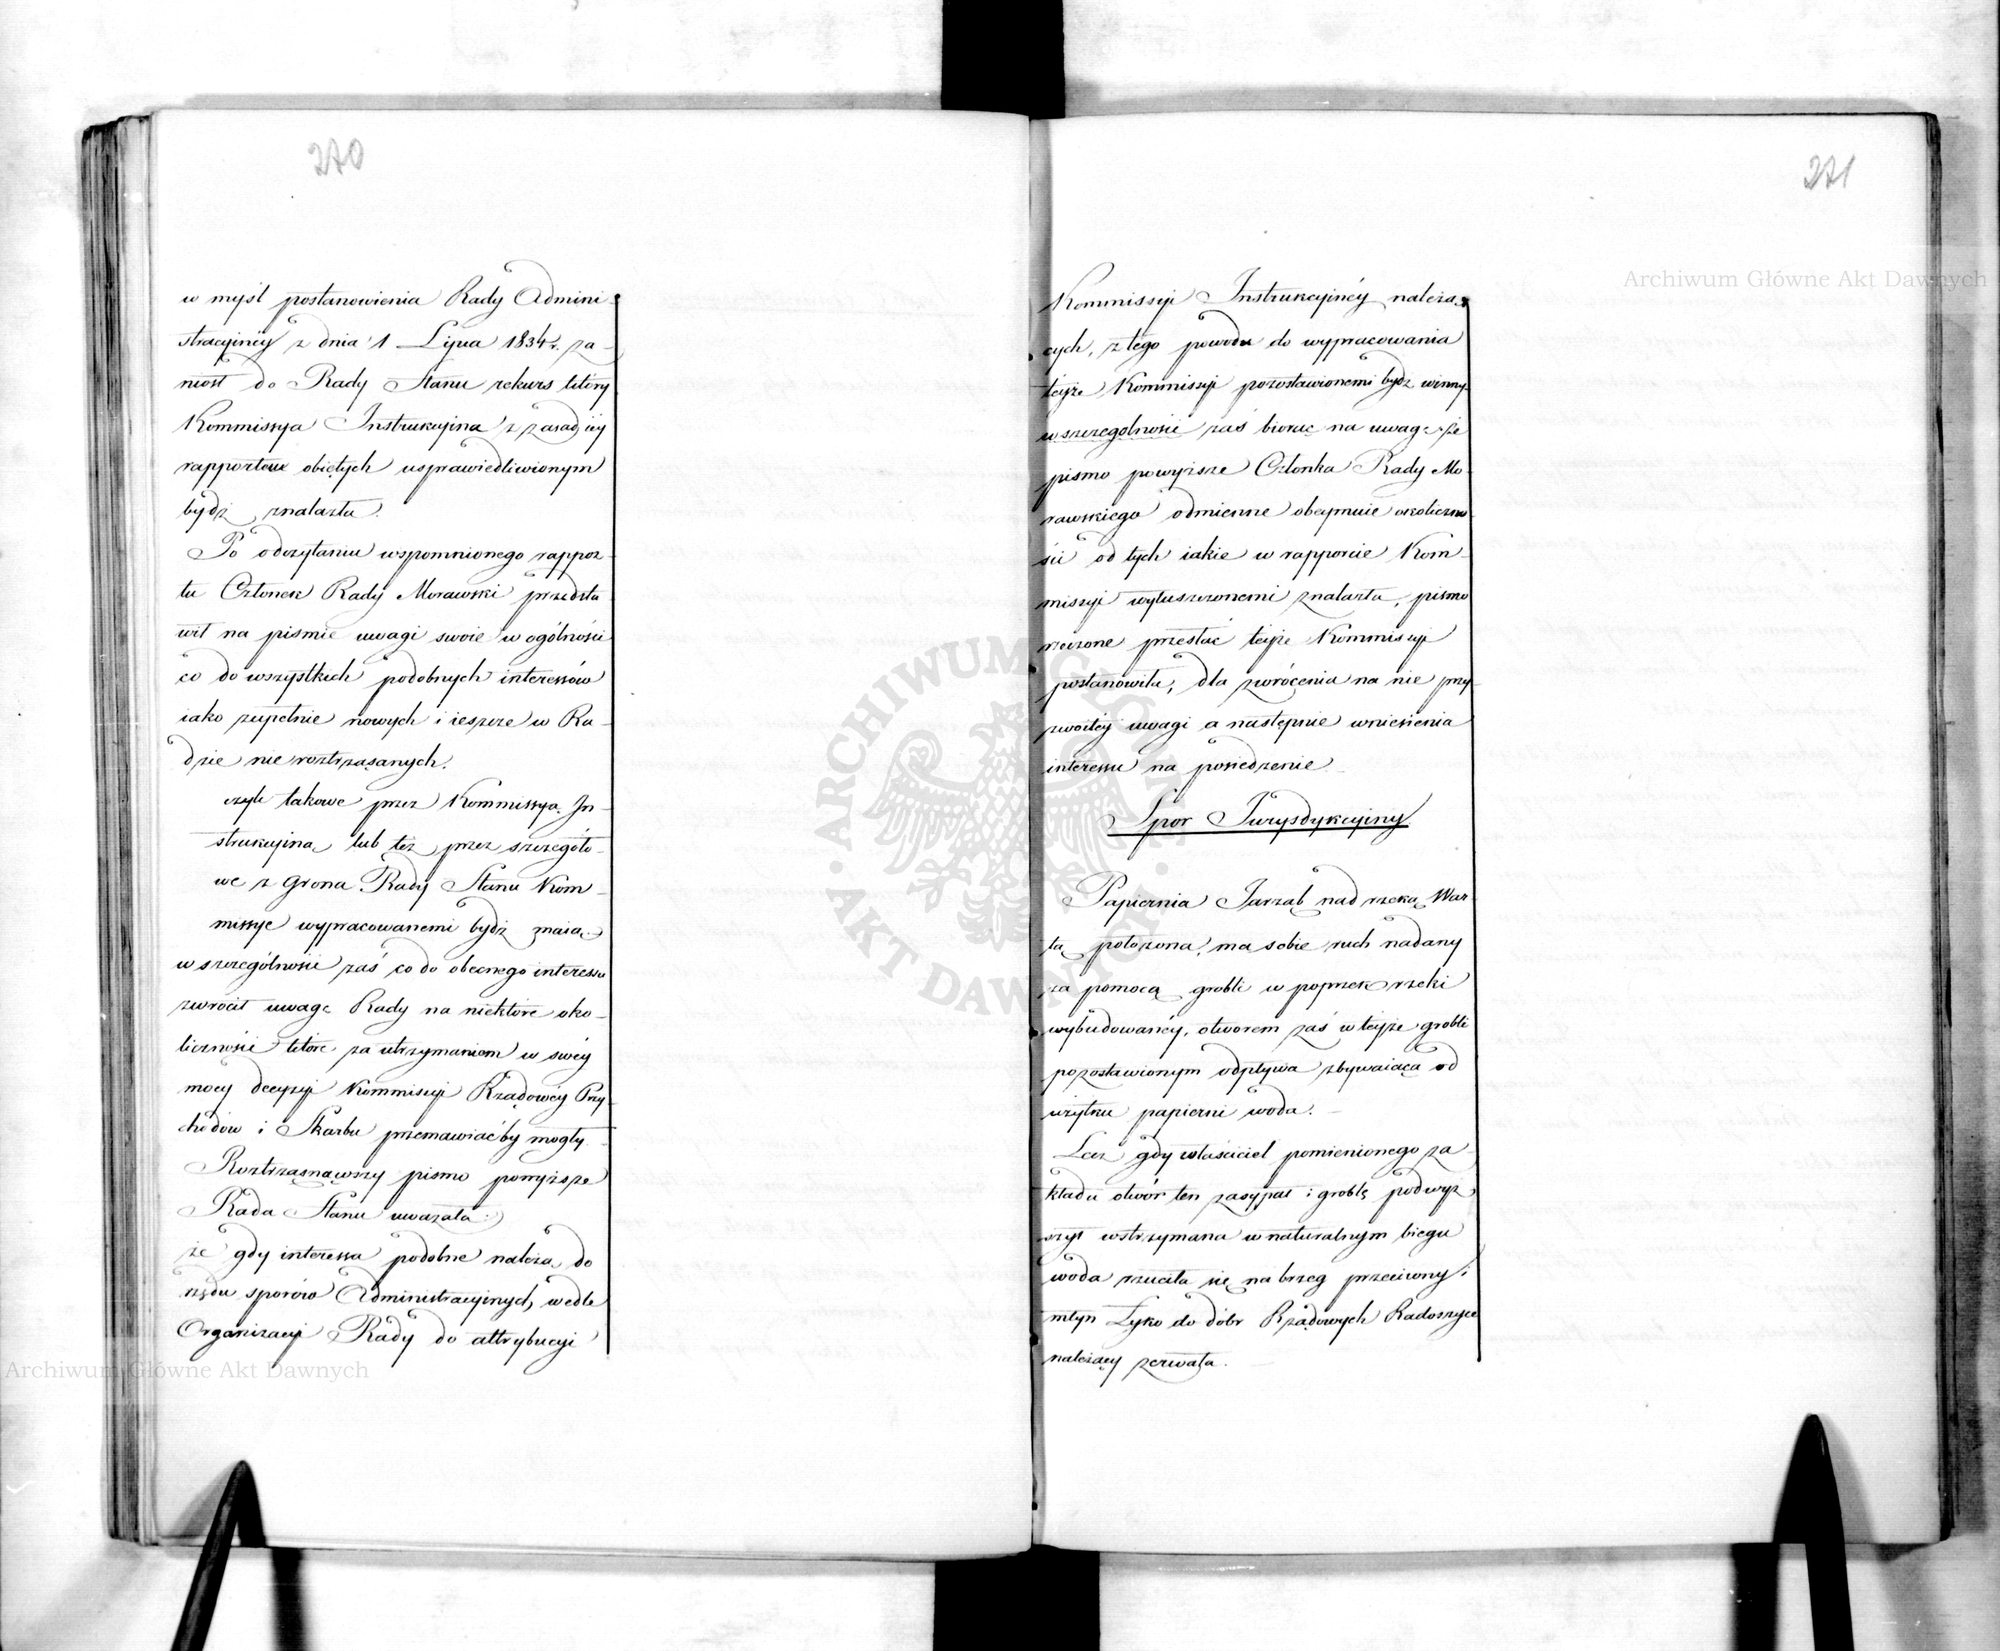 270
w myśl postanowienia Rady Admini-
stracyinéy z dnia 1 Lipca 1834 r. za-
niosł do Rady Stanu rekurs który
Kommissya Instrukcyina z zasad iéy
rapportem obiętych usprawiedliwionym
bydź znalazła.
Po odczytaniu wspomnionego rappor-
tu Członek Rady Morawski przedsta
wił na pismie uwagi swoie w ogólności
co do wszystkich podobnych interessów
iako zupełnie nowych i ieszcze w Ra-
dzie nie roztrząsanych.
czyli takowe przez Kommissyą In-
strukcyiną lub też przez szczegóło-
we z Grona Rady Stanu Kom-
missye wypracowanemi bydź maią
w szczególności zaś co do obecnego interessu
zwrócił uwagę Rady na niektóre oko-
liczności które za utrzymaniem w swéy
mocy decyzyi Kommissyi Rządowéy Przy-
chodów i Skarbu przemawiać by mogły.
Roztrząsnąwszy pismo powyższe
Rada Stanu uważała:
że gdy interessa podobne należą do
rzędu sporów Administracyinych, wedle
Organizacyi Rady do attrybucyi
271
Kommissyi Instrukcyinéy należą-
cych, z tego powodu do wypracowania
teyże Kommissyi pozostawionemi bydź winny
w szczególności zaś biorąc na uwagę że
pismo powyższe Członka Rady Mo-
rawskiego odmienne obeymuie okoliczno-
ści od tych iakie w rapporcie Kom-
missyi wyłuszczonemi znalazła, pismo
rzeczone przesłać teyże Kommissyi
postanowiła, dla zwrócenia na nie przy-
zwoitéy uwagi a następnie wniesienia
interessu na posiedzenie.
Spor Jurysdykcyiny
Papiernia Jarząb nad rzeką War-
tą położona, ma sobie ruch nadany
za pomocą grobli w poprzek rzeki
wybudowanéy, otworem zaś w teyże grobli
pozostawionym odpływa zbywaiąca od
użytku papierni woda.
Lecz gdy właściciel pomienionego za-
kładu otwór ten zasypał i groblę podwyż
szył wstrzymana w naturalnym biegu
woda rzuciła się na brzeg przeciwny i
młyn Łyko do dóbr Rządowych Radoszyce
należący zerwała.
Archiwum Główne Akt Dawnych
Archiwum Główne Akt Dawnych
ARCHIWUM GŁÓWNE AKT DAWNYCH